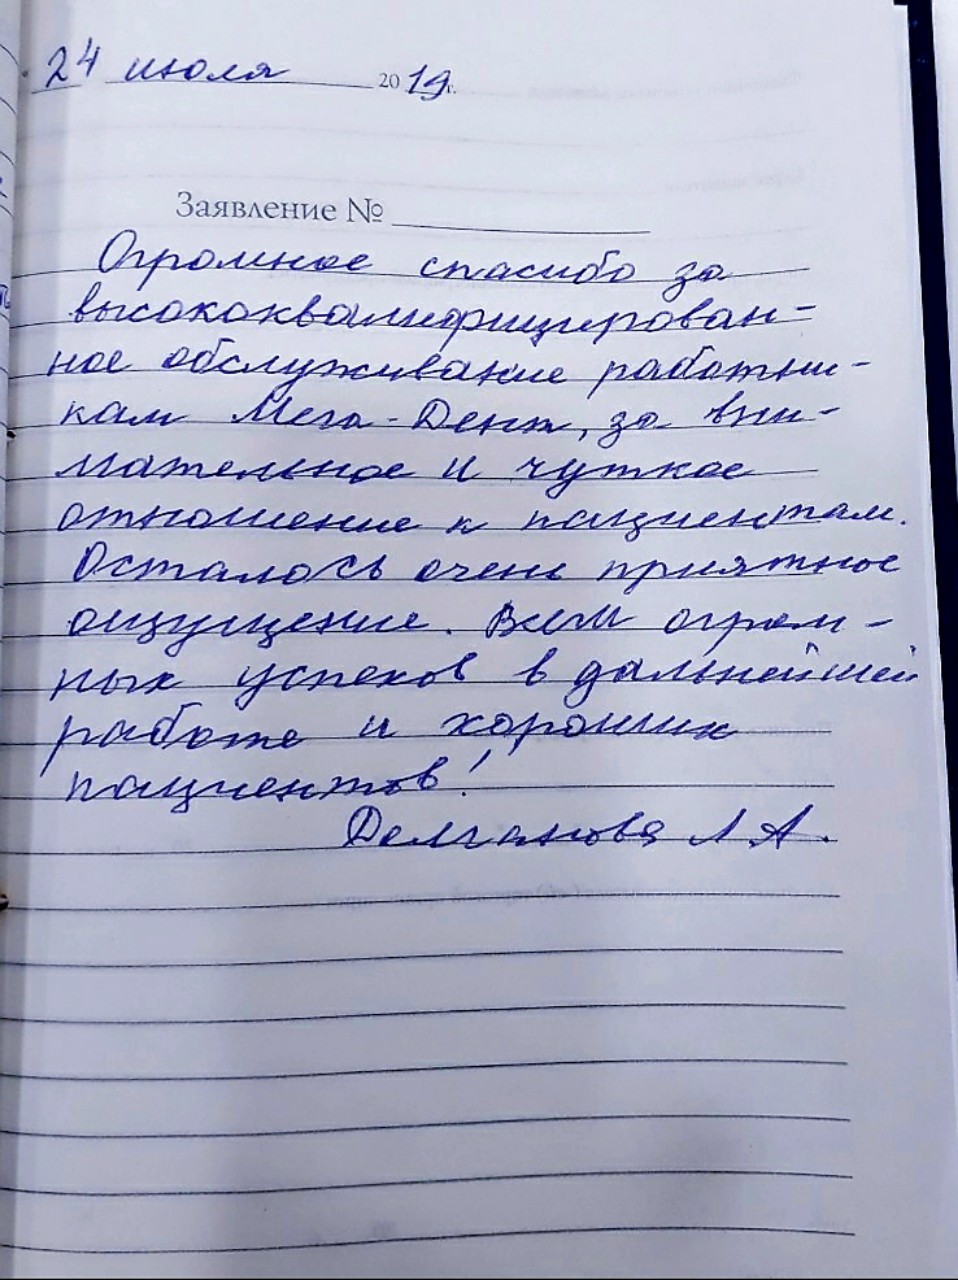 24 июля 2019г.
Заявление №
Огромное спасибо за
высококвалифицирован-
ное обслуживание работни-
кам Мега-Дент, за вни-
мательное и чуткое
отношение к пациентам.
Осталось очень приятное
ощущение. Всем огром-
ных успехов в дальнейшей
работе и хороших
пациентов!
Л А.